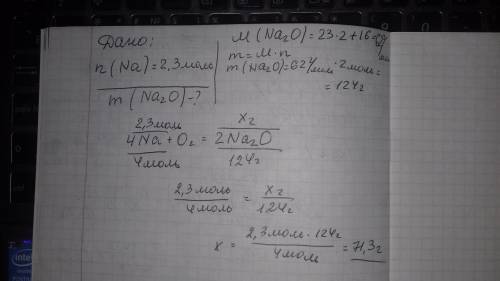 Дано:
n(Na)=2,3моль
m(Na2O)-?
M(Na2O)=23·2+16=
m=M·n
m(Na2O)=62г/моль·2моль=
=124г
2,3моль xг
4Na+O2=2Na2O
4моль 124г
2,3моль = xг
4моль 124г
x = 2,3моль·124г = 71,3г
4моль
intel